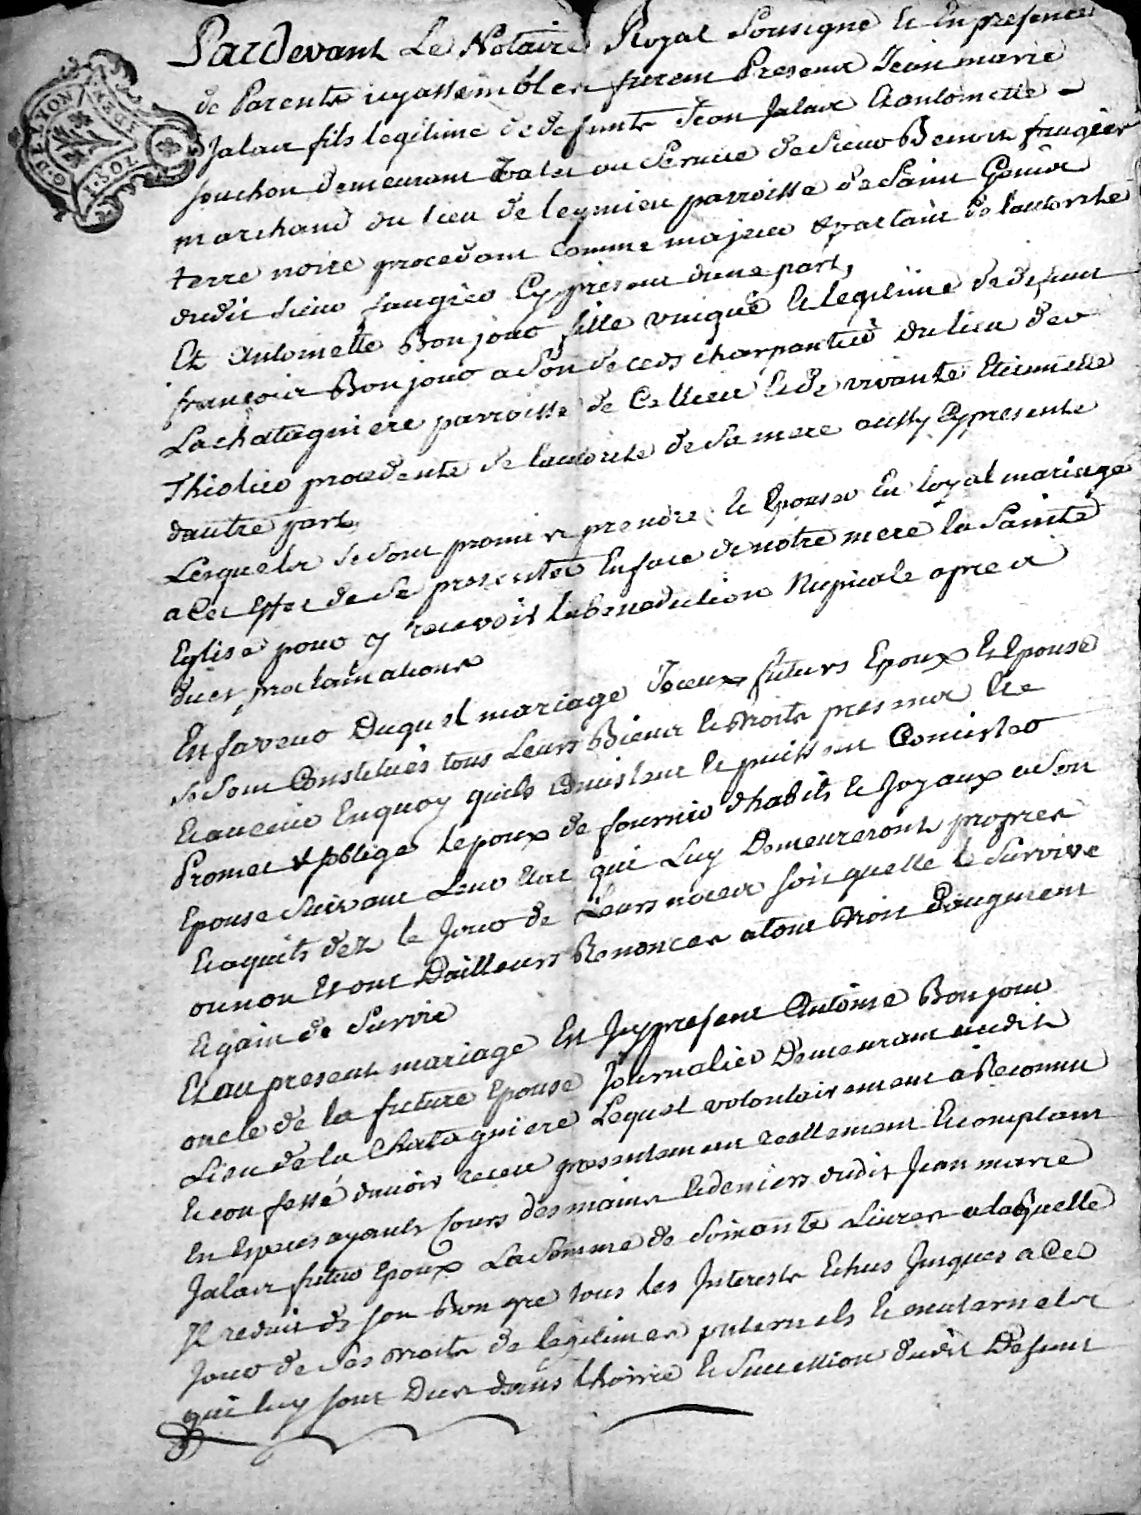 G. DE LYON
Pardevant Le Notaire Royal Sousigné Et En presence
de Parents icy assembles furent Presents Jean marie
Jalair fils legitime de defunts Jean Jalair Et antoinette
souchon demeurant Valet au Service de Sieur Benoit faugier
marchand du lieu de legnieu parroisse de Saint Genis
terre noire procedant comme majeur & partant de lautorité
dudit Sieur faugier Cy present dune part,
Et Antoinette Bonjour fille unique Et legitime de defunt
francois Bonjour a Son deceds charpantier du lieu de
Lachatagniere parroisse de Cellieu Et de vivante Etiennette
Thiolier procedente de lautorite de Sa mere aussy Cy presente
dautre part
Lesquels Se Sont promis prendre Et Epouser En loyal mariage
a Cet Effet de Se presenter En face de notre mere la Sainte
Eglise pour y recevoir la benediction Nuptiale apres
dues proclamations
En faveur Duquel mariage Iceux futurs Epoux Et Epouse
Se Sont Constitués tous Leurs Bienns Et droits presents Et
Et avenir En quoy quils Consistent Et puissent Consister
Promet & soblige lepoux de fournir dhabits Et Joyaux a Son
Epouse Suivant Leur Etat qui Luy Demeureront propres
Et aquits dez le Jour de Leurs noces soit quelle le Survive
ou non Et ont Dailleurs Renonces a tout droit Daugment
Et gain de Survie
Et au present mariage Est Jcy present Antoine Bonjour
oncle de la future Epouse Journalier Demeurant audit
Lieu de la Chatagniere Lequel volontairement à Reconnu
Et confessé davoir receu presentement reellement Et comptant
En Especes ayants Cours des mains Et deniers dudit Jean marie
Jalair futur Epoux La Somme de Soixante Livres a laquelle
Jl reduit de son Bon gre tous les Interests Echus Jusques a Ce
Jour de Ses droits de legitimes paternels Et maternels
qui luy sont Dus dans lhoirie Et Succession dudit Defunt